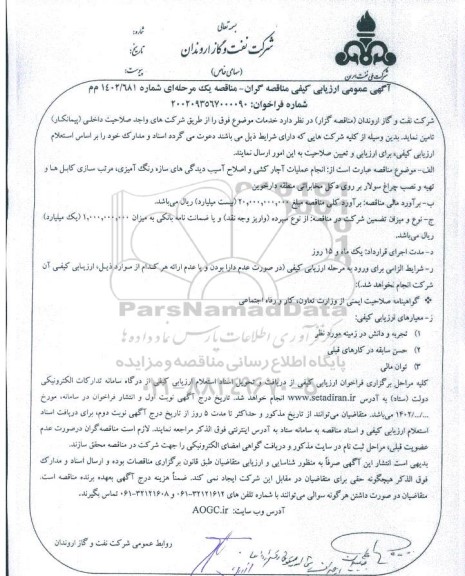 بسمه تعالی
شرکت نفت و گاز اروندان
(سهامی خاص)
شماره:
تاریخ:
پیوست:
شرکت ملی نفت ایران
آگهی عمومی ارزیابی کیفی مناقصه گران- مناقصه یک مرحله‌ای شماره ۱۴۰۲/۶۸۱ م‌م
شماره فراخوان: ۲۰۰۲۰۹۳۵۶۷۰۰۰۰۹۰
شرکت نفت و گاز اروندان (مناقصه گزار) در نظر دارد خدمات موضوع فوق را از طریق شرکت های واجد صلاحیت داخلی (پیمانکار)
تامین نماید. بدین وسیله از کلیه شرکت هایی که دارای شرایط ذیل می باشند دعوت می گردد اسناد و مدارک خود را بر اساس استعلام
ارزیابی کیفی، برای ارزیابی و تعیین صلاحیت به این امور ارسال نمایند.
الف- موضوع مناقصه عبارت است از: انجام عملیات آچار کشی و اصلاح آسیب دیدگی های سازه رنگ آمیزی، مرتب سازی کابل ها و
تهیه و نصب چراغ سولار بر روی دکل مخابراتی منطقه دارخوین
ب- برآورد مالی مناقصه: برآورد کلی مناقصه مبلغ ۲۰,۰۰۰,۰۰۰,۰۰۰ (بیست میلیارد) ریال می‌باشد.
ج- نوع و میزان تضمین شرکت در مناقصه: از نوع سپرده (واریز وجه نقد) و یا ضمانت نامه بانکی به میزان ۱,۰۰۰,۰۰۰,۰۰۰ (یک میلیارد)
ریال می‌باشد.
د- مدت اجرای قرارداد: یک ماه و ۱۵ روز
ر- شرایط الزامی برای ورود به مرحله ارزیابی کیفی (در صورت عدم دارا بودن و یا عدم ارائه هر کدام از موارد ذیل، ارزیابی کیفی آن
شرکت انجام نخواهد شد.):
❖ گواهینامه صلاحیت ایمنی از وزارت تعاون، کار و رفاه اجتماعی
ز- معیارهای ارزیابی کیفی:
۱) تجربه و دانش در زمینه مورد نظر
۲) حسن سابقه در کارهای قبلی
۳) توان مالی
کلیه مراحل برگزاری فراخوان ارزیابی کیفی از دریافت و تحویل اسناد استعلام ارزیابی کیفی از درگاه سامانه تدارکات الکترونیکی
دولت (ستاد) به آدرس www.setadiran.ir انجام خواهد شد. تاریخ درج آگهی نوبت اول و انتشار فراخوان در سامانه، مورخ
.../.../۱۴۰۲ می‌باشد. متقاضیان می‌توانند از تاریخ مذکور و حداکثر تا مدت ۵ روز از تاریخ درج آگهی نوبت دوم، برای دریافت اسناد
استعلام ارزیابی کیفی و اسناد مناقصه به سامانه ستاد به آدرس اینترنتی فوق الذکر مراجعه نمایند. لازم است مناقصه گران درصورت عدم
عضویت قبلی، مراحل ثبت نام در سایت مذکور و دریافت گواهی امضای الکترونیکی را جهت شرکت در مناقصه محقق سازند.
بدیهی است انتشار این آگهی صرفاً به منظور شناسایی و ارزیابی متقاضیان طبق قانون برگزاری مناقصات بوده و ارسال اسناد و مدارک
فوق الذکر هیچگونه حقی برای متقاضیان در مقابل این شرکت ایجاد نمی کند. ضمناً هزینه درج آگهی بعهده برنده مناقصه است.
متقاضیان در صورت داشتن هرگونه سوالی می‌توانند با شماره تلفن های ۳۲۱۲۱۶۱۲-۰۶۱ و ۳۲۱۲۱۶۰۸-۰۶۱ تماس بگیرند.
آدرس وب سایت: AOGC.ir
روابط عمومی شرکت نفت و گاز اروندان
ParsNamadData
پایگاه اطلاع رسانی مناقصه و مزایده